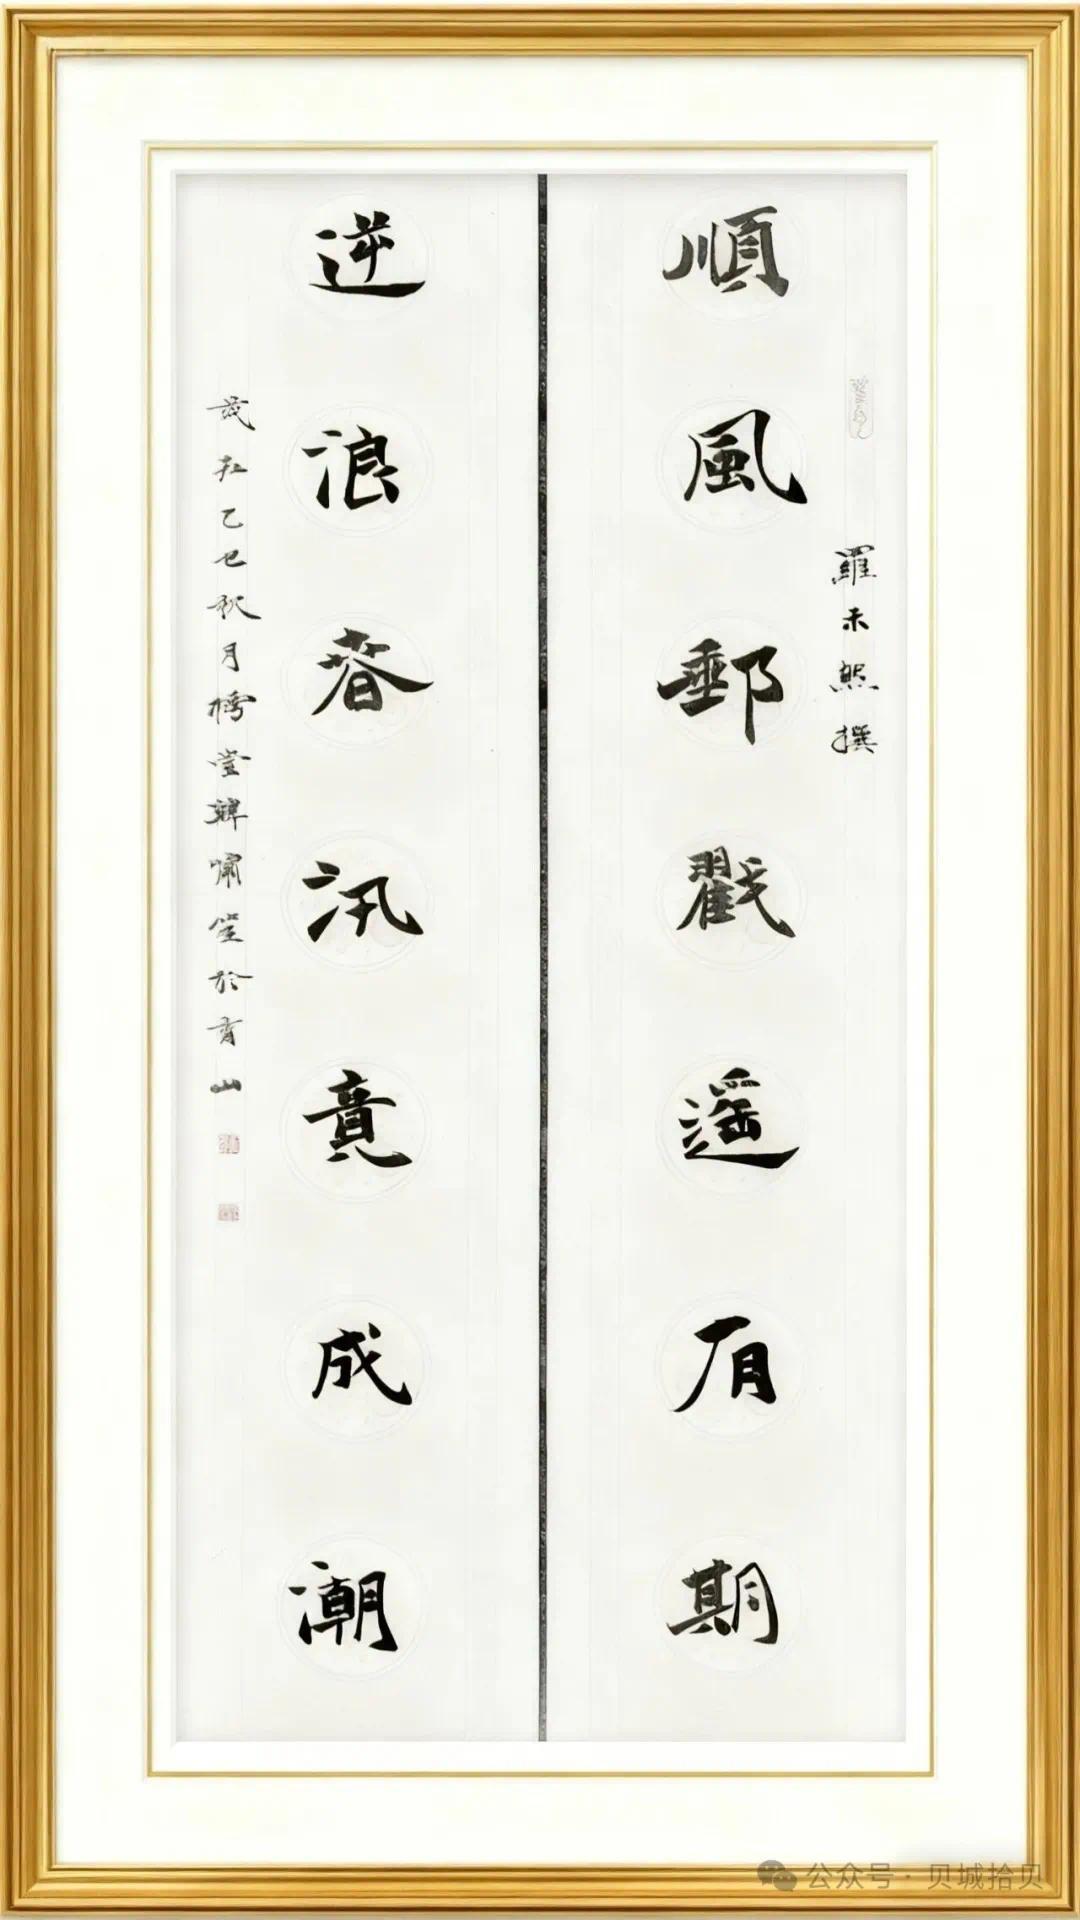 順風郵戳遥有期
羅
撰
逆浪春汛竟成潮
歲在乙巳秋月樗堂韓嘯
於青山
公众号 · 贝城拾贝